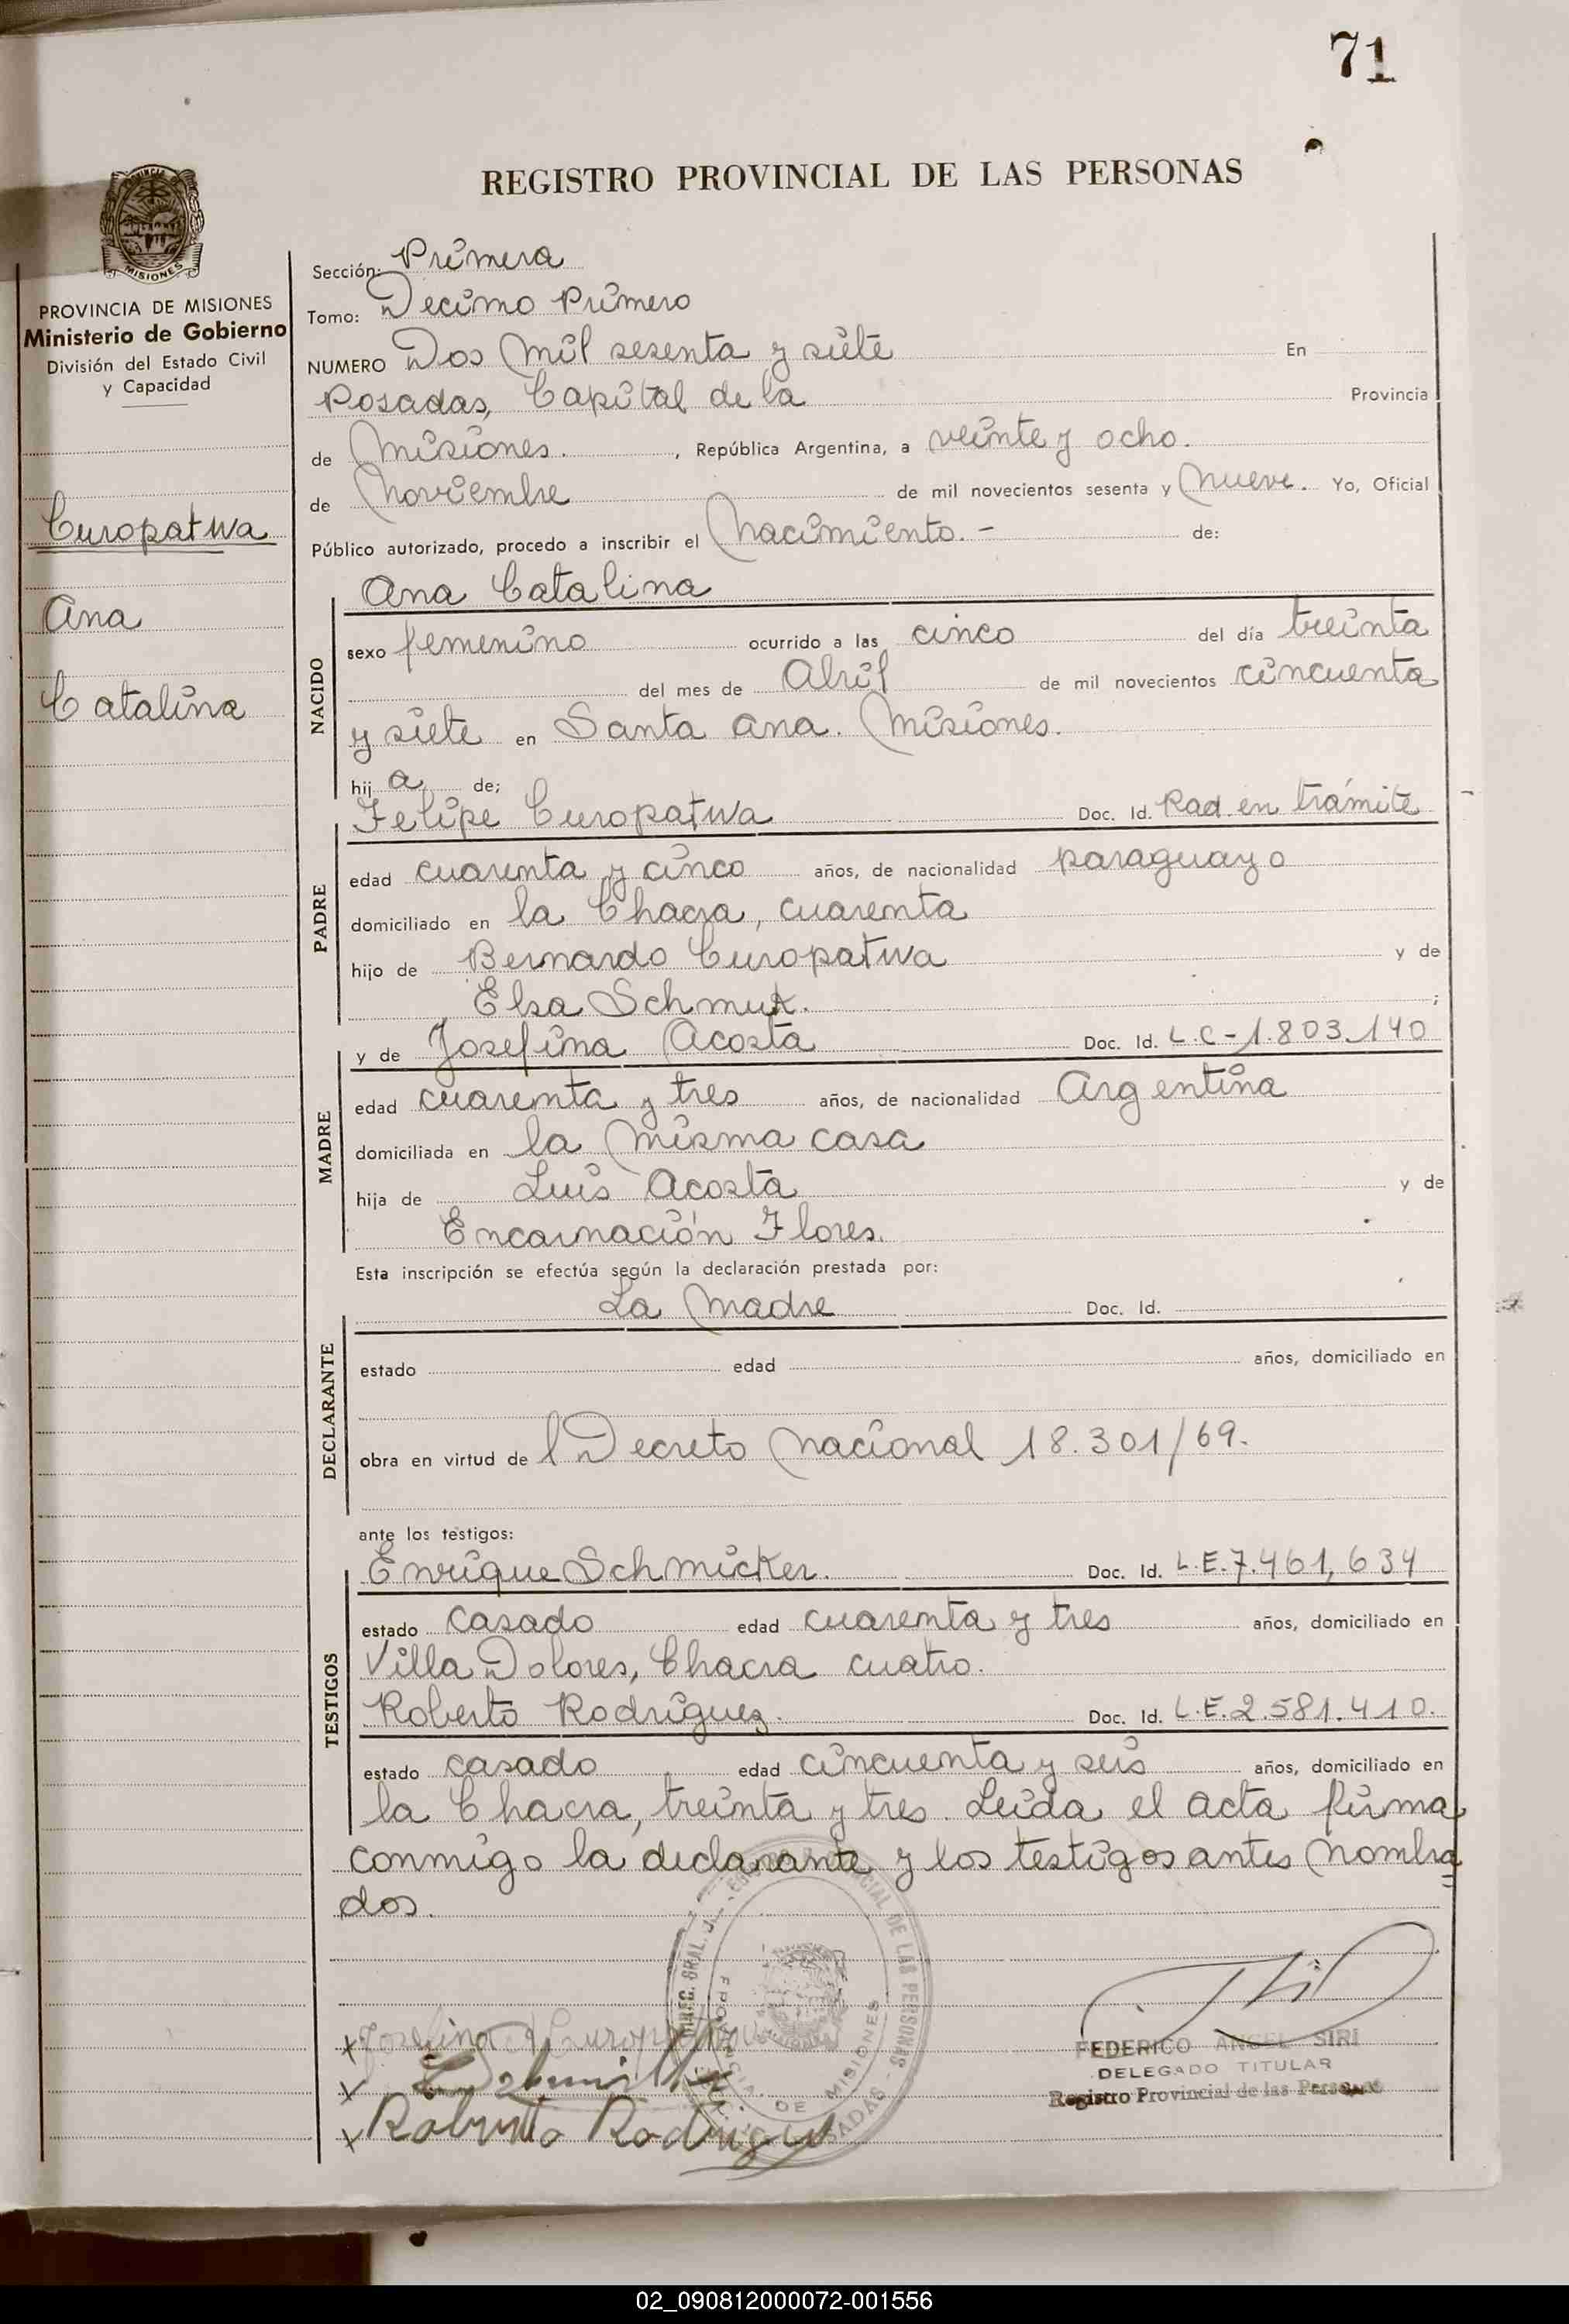 71
REGISTRO PROVINCIAL DE LAS PERSONAS
PROVINCIA DE MISIONES
Ministerio de Gobierno
División del Estado Civil
y Capacidad
Curopatwa
Ana
Catalina
Sección: Primera
Tomo: Decimo Primero
NUMERO Dos mil sesenta y siete En
Posadas, Capital de la Provincia
de Misiones. , República Argentina, a veinte y ocho.
de Noviembre de mil novecientos sesenta y nueve. Yo, Oficial
Público autorizado, procedo a inscribir el Nacimiento.- de:
NACIDO
Ana Catalina
sexo femenino ocurrido a las cinco del día treinta
del mes de Abril de mil novecientos cincuenta
y siete en Santa Ana. Misiones.
hij a de;
PADRE
Felipe Curopatwa Doc. Id. Rad. en trámite
edad cuarenta y cinco años, de nacionalidad paraguayo
domiciliado en la Chacra, cuarenta
hijo de Bernardo Curopatwa y de
Elsa Schmuk. ;
MADRE
y de Josefina Acosta Doc. Id. L.C-1.803.140
edad cuarenta y tres años, de nacionalidad Argentina
domiciliada en la misma casa
hija de Luis Acosta y de
Encarnación Flores.
Esta inscripción se efectúa según la declaración prestada por:
DECLARANTE
La Madre Doc. Id.
estado edad años, domiciliado en
obra en virtud de l Decreto Nacional 18.301/69.
ante los testigos:
TESTIGOS
Enrique Schmicker. Doc. Id. L.E.7.461,634
estado casado edad cuarenta y tres años, domiciliado en
Villa Dolores, Chacra cuatro.
Roberto Rodríguez. Doc. Id. L.E.2.581.410.
estado casado edad cincuenta y seis años, domiciliado en
la Chacra, treinta y tres. Leida el acta firma
conmigo la declarante y los testigos antes nombra
dos.
Josefina
Roberto Rodriguez
DE LAS PERSONAS
DE MISIONES
FEDERICO ANGEL SIRI
DELEGADO TITULAR
Registro Provincial de las Personas
02_090812000072-001556